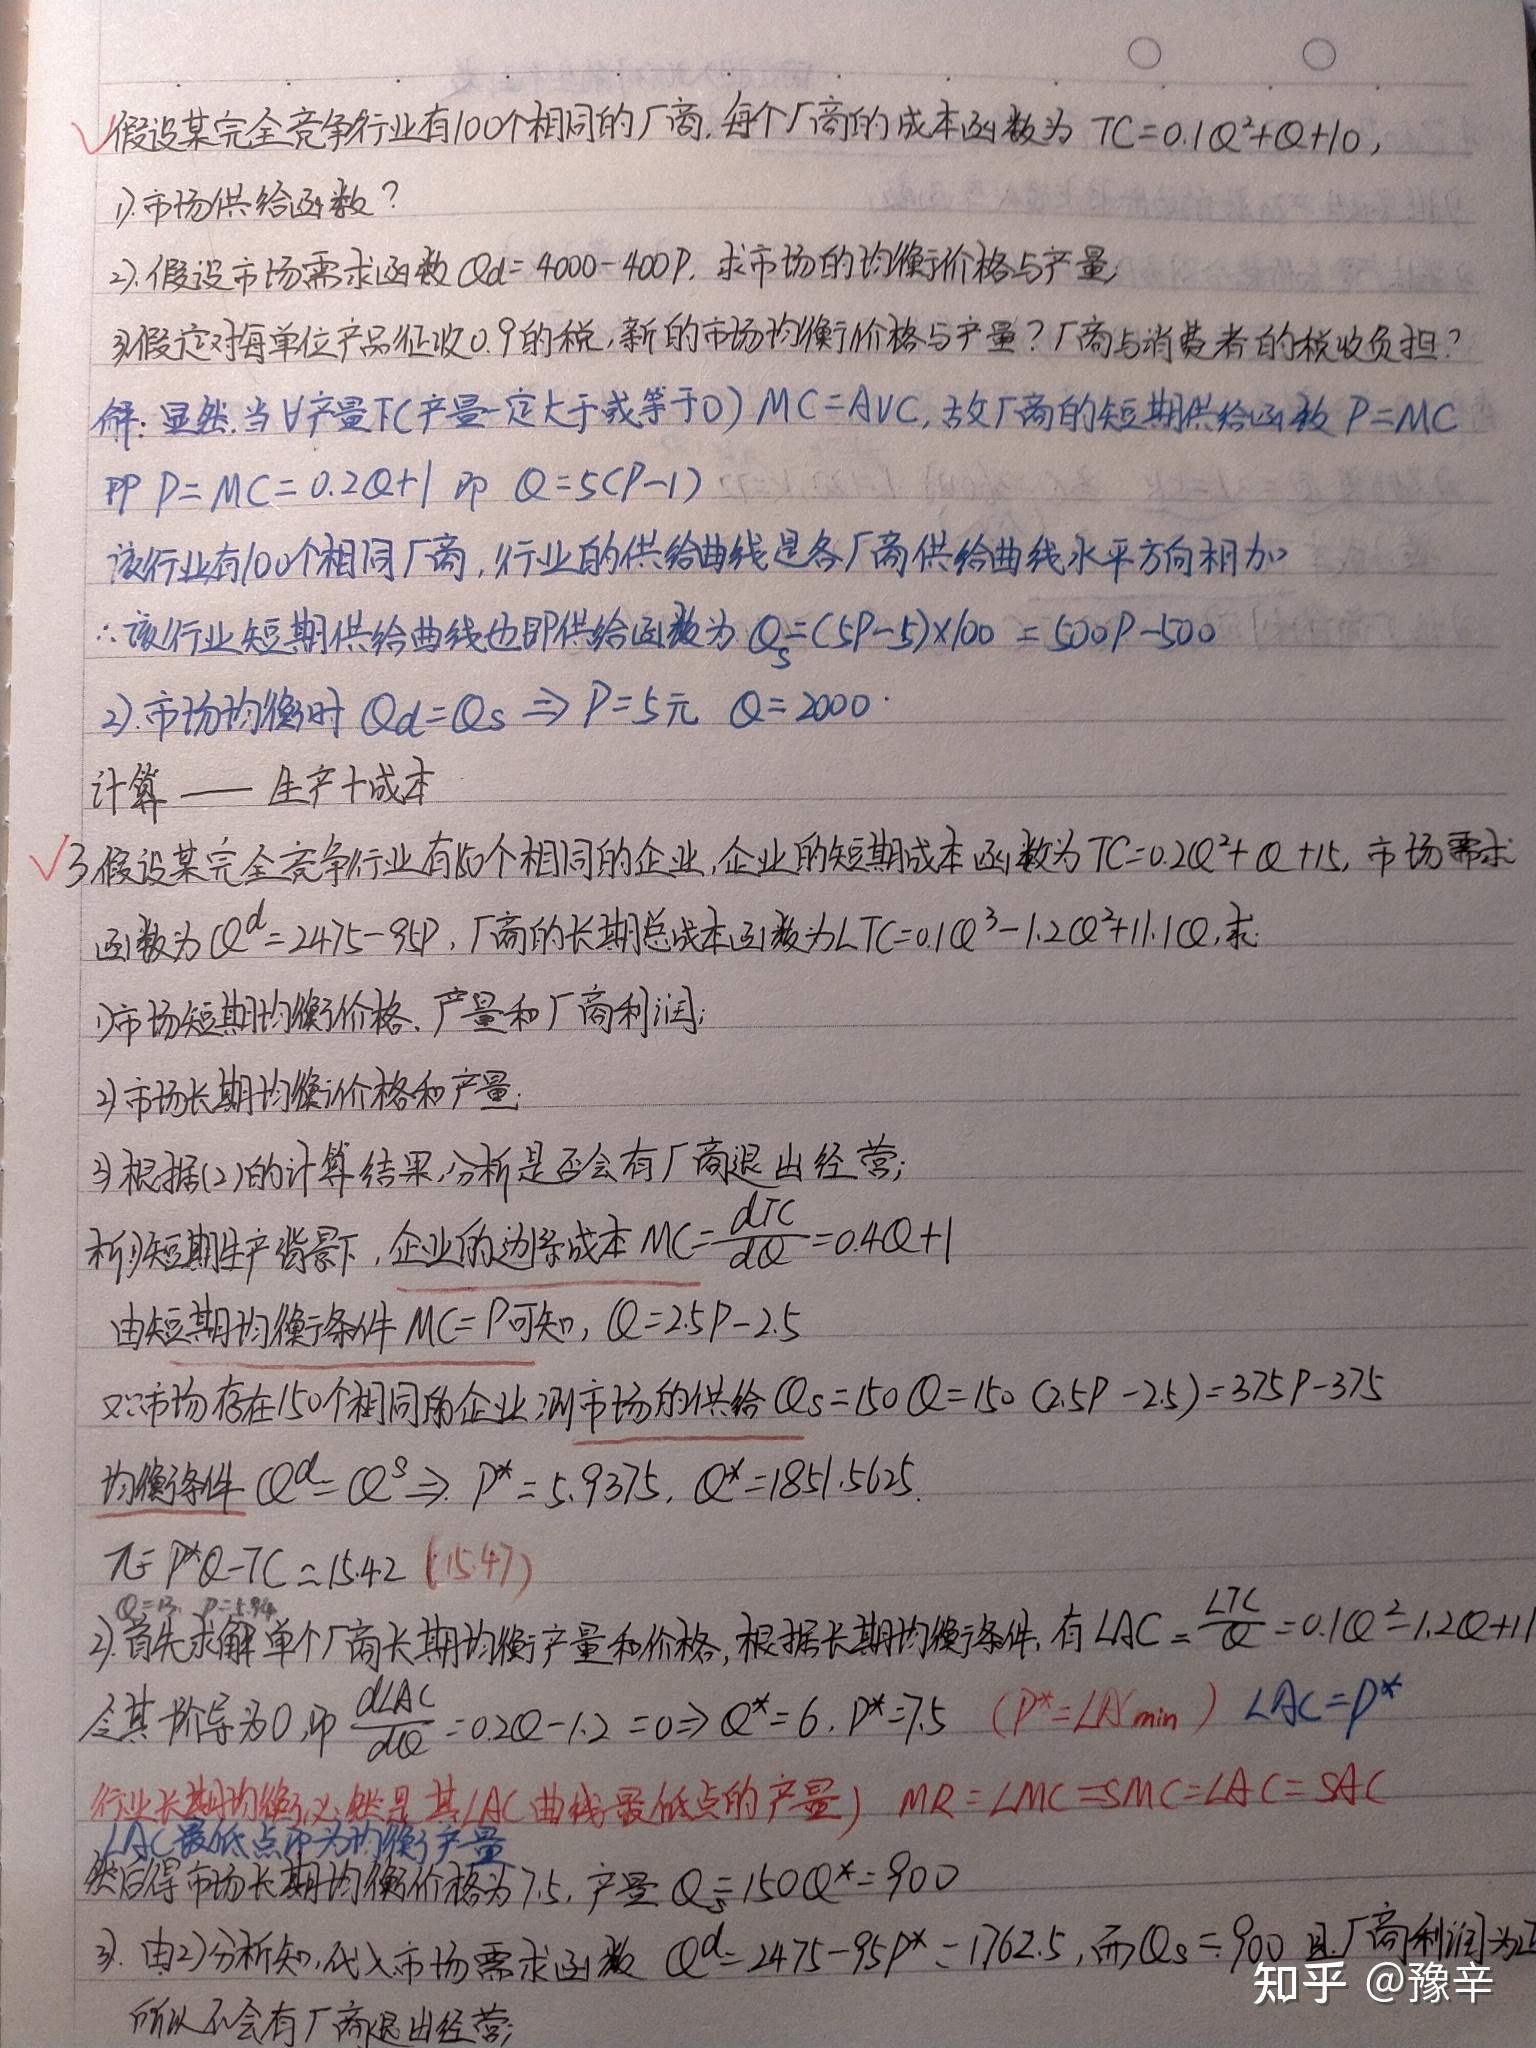 假设某完全竞争行业有100个相同的厂商,每个厂商的成本函数为 TC=0.1Q²+Q+10,
1).市场供给函数?
2).假设市场需求函数Qd=4000-400P,求市场的均衡价格与产量;
3)假定对每单位产品征收0.9的税,新的市场均衡价格与产量?厂商与消费者的税收负担?
解:显然,当∀产量下(产量一定大于或等于0) MC=AVC,故厂商的短期供给函数 P=MC
即 P=MC=0.2Q+1 即 Q=5(P-1)
该行业有100个相同厂商,行业的供给曲线是各厂商供给曲线水平方向相加
∴该行业短期供给曲线也即供给函数为 Qs=(5P-5)×100=500P-500
2).市场均衡时 Qd=Qs ⇒ P=5元 Q=2000.
计算——生产+成本
3.假设某完全竞争行业有150个相同的企业,企业的短期成本函数为TC=0.2Q²+Q+15,市场需求
函数为Qᵈ=2475-95P,厂商的长期总成本函数为LTC=0.1Q³-1.2Q²+11.1Q,求:
1)市场短期均衡价格、产量和厂商利润;
2)市场长期均衡价格和产量;
3)根据(2)的计算结果,分析是否会有厂商退出经营;
析1)短期生产背景下,企业的边际成本MC=dTC/dQ=0.4Q+1
由短期均衡条件MC=P可知,Q=2.5P-2.5
又∵市场存在150个相同的企业,则市场的供给Qs=150Q=150(2.5P-2.5)=375P-375
均衡条件 Qᵈ=Qˢ ⇒ P*=5.9375, Q*=1851.5625.
π=P*Q-TC≈15.42 (15.47)
Q=13, P=5.94
2).首先求解单个厂商长期均衡产量和价格,根据长期均衡条件,有LAC=LTC/Q=0.1Q²-1.2Q+11
令其一阶导为0,即 dLAC/dQ=0.2Q-1.2=0⇒Q*=6,P*=7.5 (P*=LACmin) LAC=P*
行业长期均衡,必然是其LAC曲线最低点的产量) MR=LMC=SMC=LAC=SAC
LAC最低点即为均衡产量
然后得市场长期均衡价格为7.5,产量Qs=150Q*=900
3.由2)分析知,代入市场需求函数 Qᵈ=2475-95P*=1762.5,而Qs=900且厂商利润为正
所以不会有厂商退出经营;
知乎 @豫辛